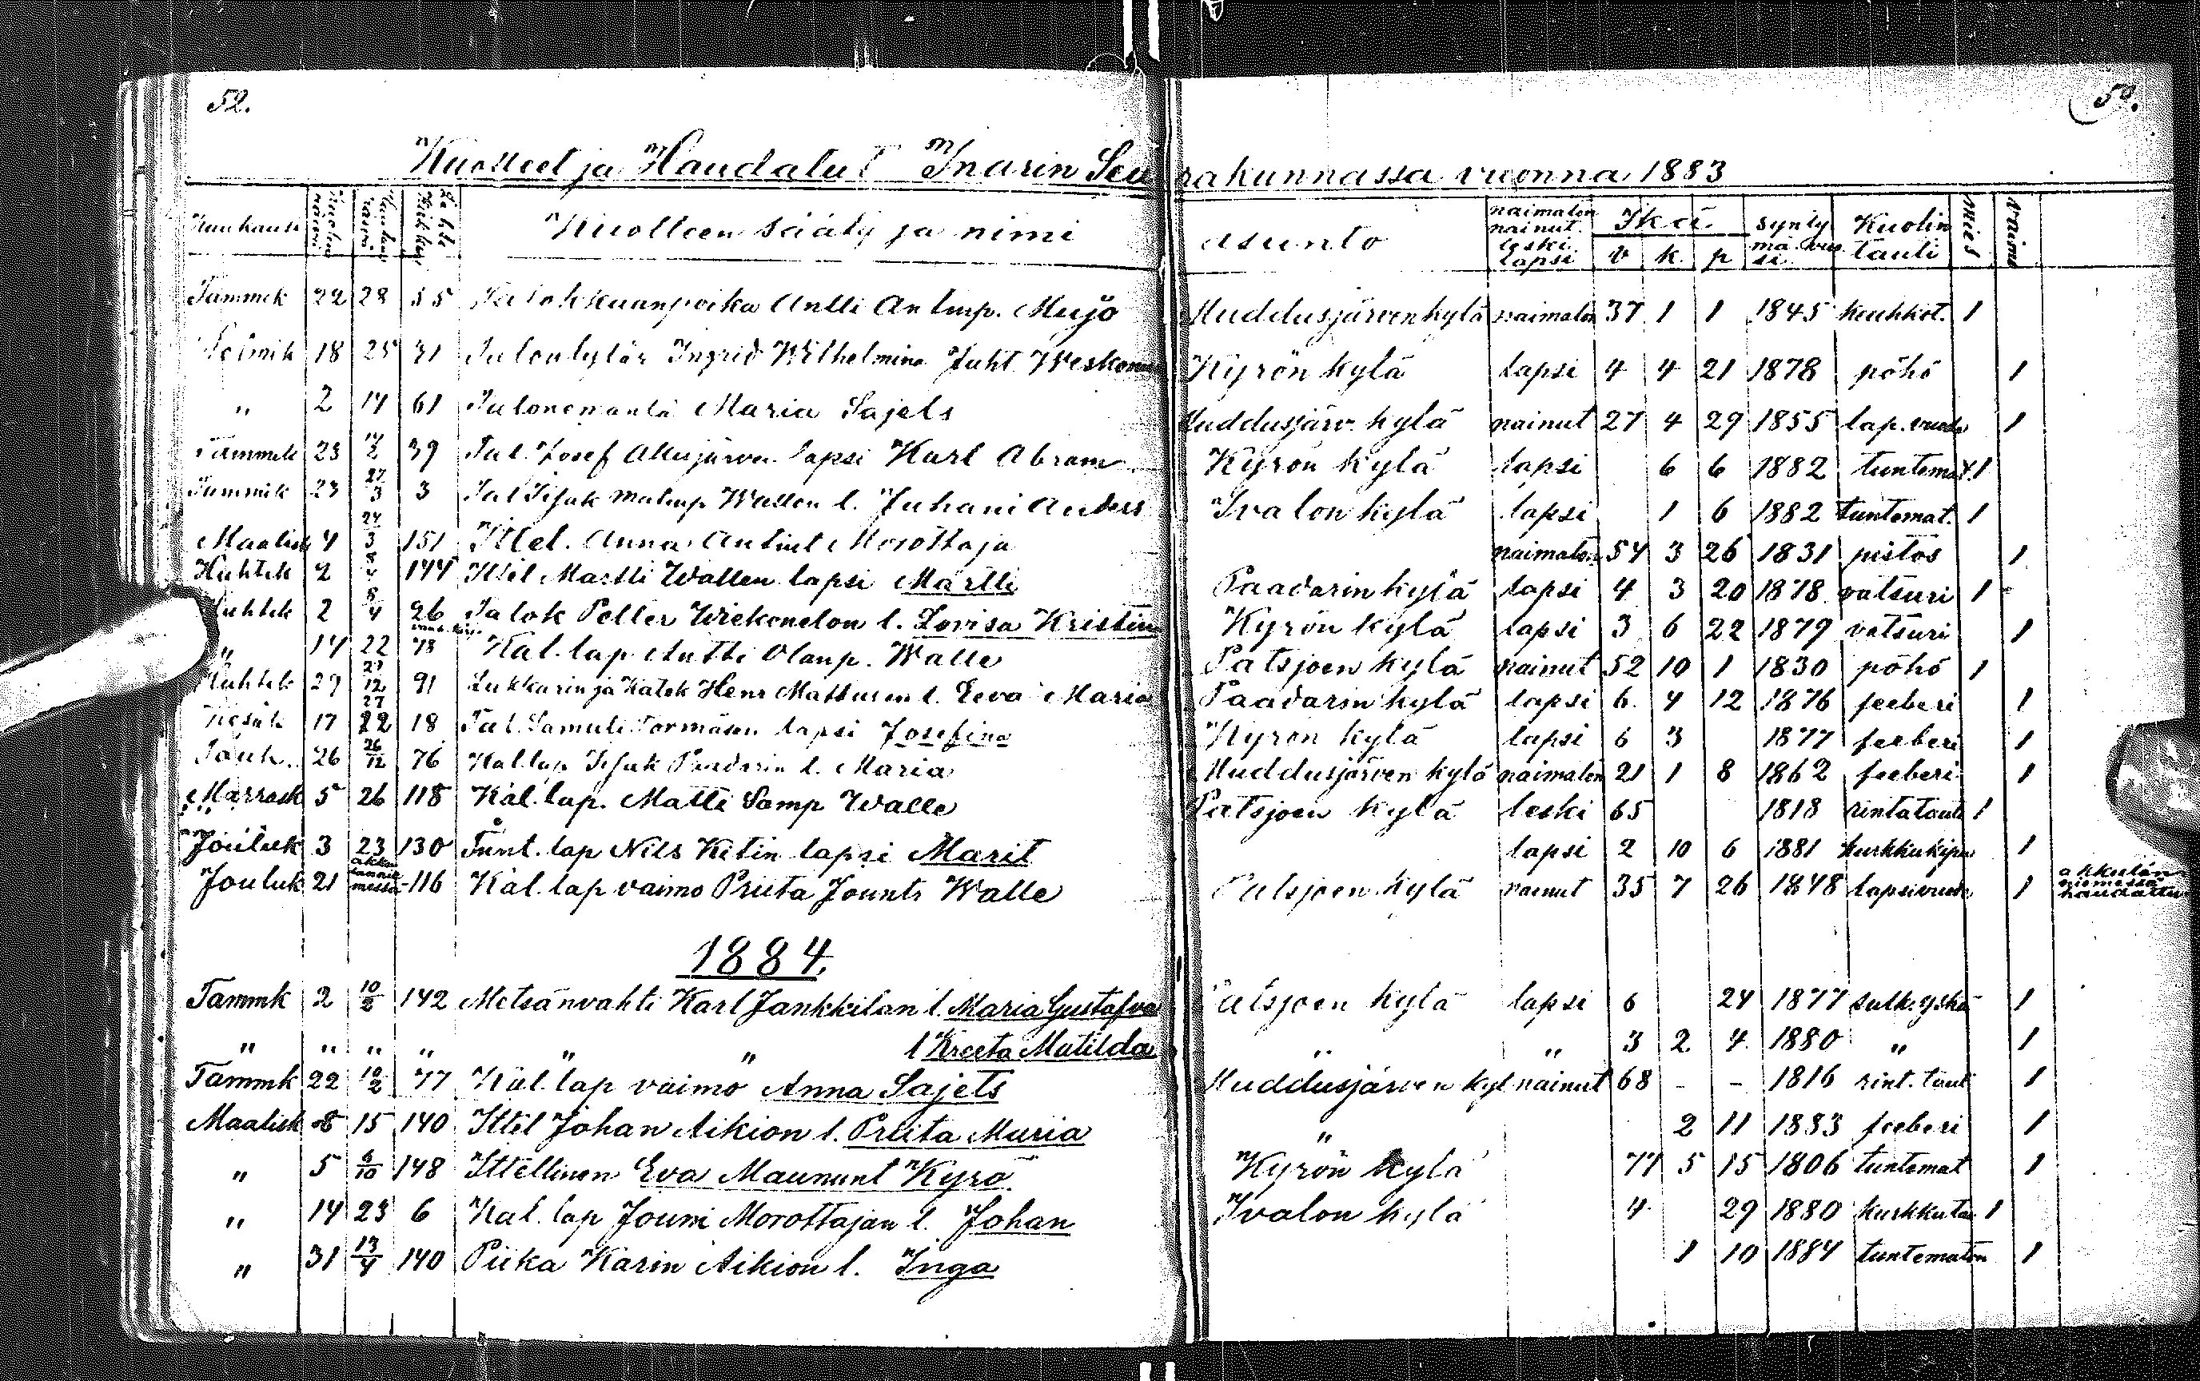 52.
50.
Kuolleet ja Haudatut Inarin Seurakunnassa vuonna 1883
Kuukausi Kuolleen sääty ja nimi asunto naimaton nainut leski lapsi Ikä v k. p synty mä vuosi Kuolin tauti Mies Vaimo
Tammik 22 28 35 Talokkaanpoika Antti Antinp. Mujo Muddusjärven kylä naimaton 37 1 1 1845 keuhkot. 1
Helmik 18 25 31 Talontytär Ingrid Wilhelmina Juht Kyrön kylä lapsi 4 4 21 1878 pöhö 1
" 2 14 61 Talonemäntä Maria Sajets Muddusjärv. kylä nainut 27 4 29 1855 lap.vuode 1
Tammik 23 39 Tal. Josef lapsi Karl Abram Kyrön kylä lapsi 6 6 1882 tuntemat. 1
Tammik 23 27/3 3 Tal Wallen l. Juhani Anders Ivalon kylä lapsi 1 6 1882 tuntemat. 1
Maalisk 4 24/3 151 Ittel. Anna Antint Morottaja naimaton 54 3 26 1831 pistos 1
Huhtik 2 8/4 144 Ittel Martti Wallen lapsi Martti Paadarin kylä lapsi 4 3 20 1878 vatsuri 1
Huhtik 2 8/4 26 Talok Petter l. Lovisa Kristiin Kyrön kylä lapsi 3 6 22 1879 vatsuri 1
" 14 22 73 Kal. lap Antti Olanp. Walle Patsjoen kylä nainut 52 10 1 1830 pöhö 1
Huhtik 29 27/12 91 Lukkarin ja Katek Henr Mattusen l. Eeva Maria Paadarin kylä lapsi 6. 4 12 1876 feeberi 1
Kesäk 17 22 18 Tal. Samuli Tormäsen lapsi Josefina Kyrön kylä lapsi 6 3 1877 feeberi 1
Touk. 26 26/12 76 Kal. lap Paadarin l. Maria Muddusjärven kylä naimaton 21 1 8 1862 feeberi 1
Marrask 5 26 118 Kal. lap. Matti Samp Walle Patsjoen kylä leski 65 1818 rintatauti 1
Jouluk 3 23 130 Tunt. lap Nils Kitin lapsi Marit lapsi 2 10 6 1881 kurkkukipu 1
Jouluk 21 116 Kal. lap vaimo Priita Jounts Walle Patsjoen kylä nainut 35 7 26 1848 lapsivuode 1 akkulan niemessä haudattu
1884.
Tammk 2 10/2 142 Metsänvahti Karl Jankkilan l. Maria Gustafva Patsjoen kylä lapsi 6 24 1877 tukk.yskä 1
" " " " " " l Kreeta Matilda " " 3 2 4 1880 " 1
Tammk 22 10/2 77 Kal. lap vaimo Anna Sajets Muddusjärven kyl nainut 68 - - 1816 rint. taut 1
Maalisk 8 15 140 Ittel Johan Aikion l. Priita Maria " 2 11 1883 feeberi 1
" 5 6/10 148 Ittellinen Eva Maununt Kyrö Kyrön kylä 77 5 15 1806 tuntemat 1
" 14 23 6 Kal. lap Jouni Morottajan l. Johan Ivalon kylä 4 29 1880 kurkkutau 1
" 31 13/4 140 Piika Karin Aikion l. Inga 1 10 1884 tuntematon 1